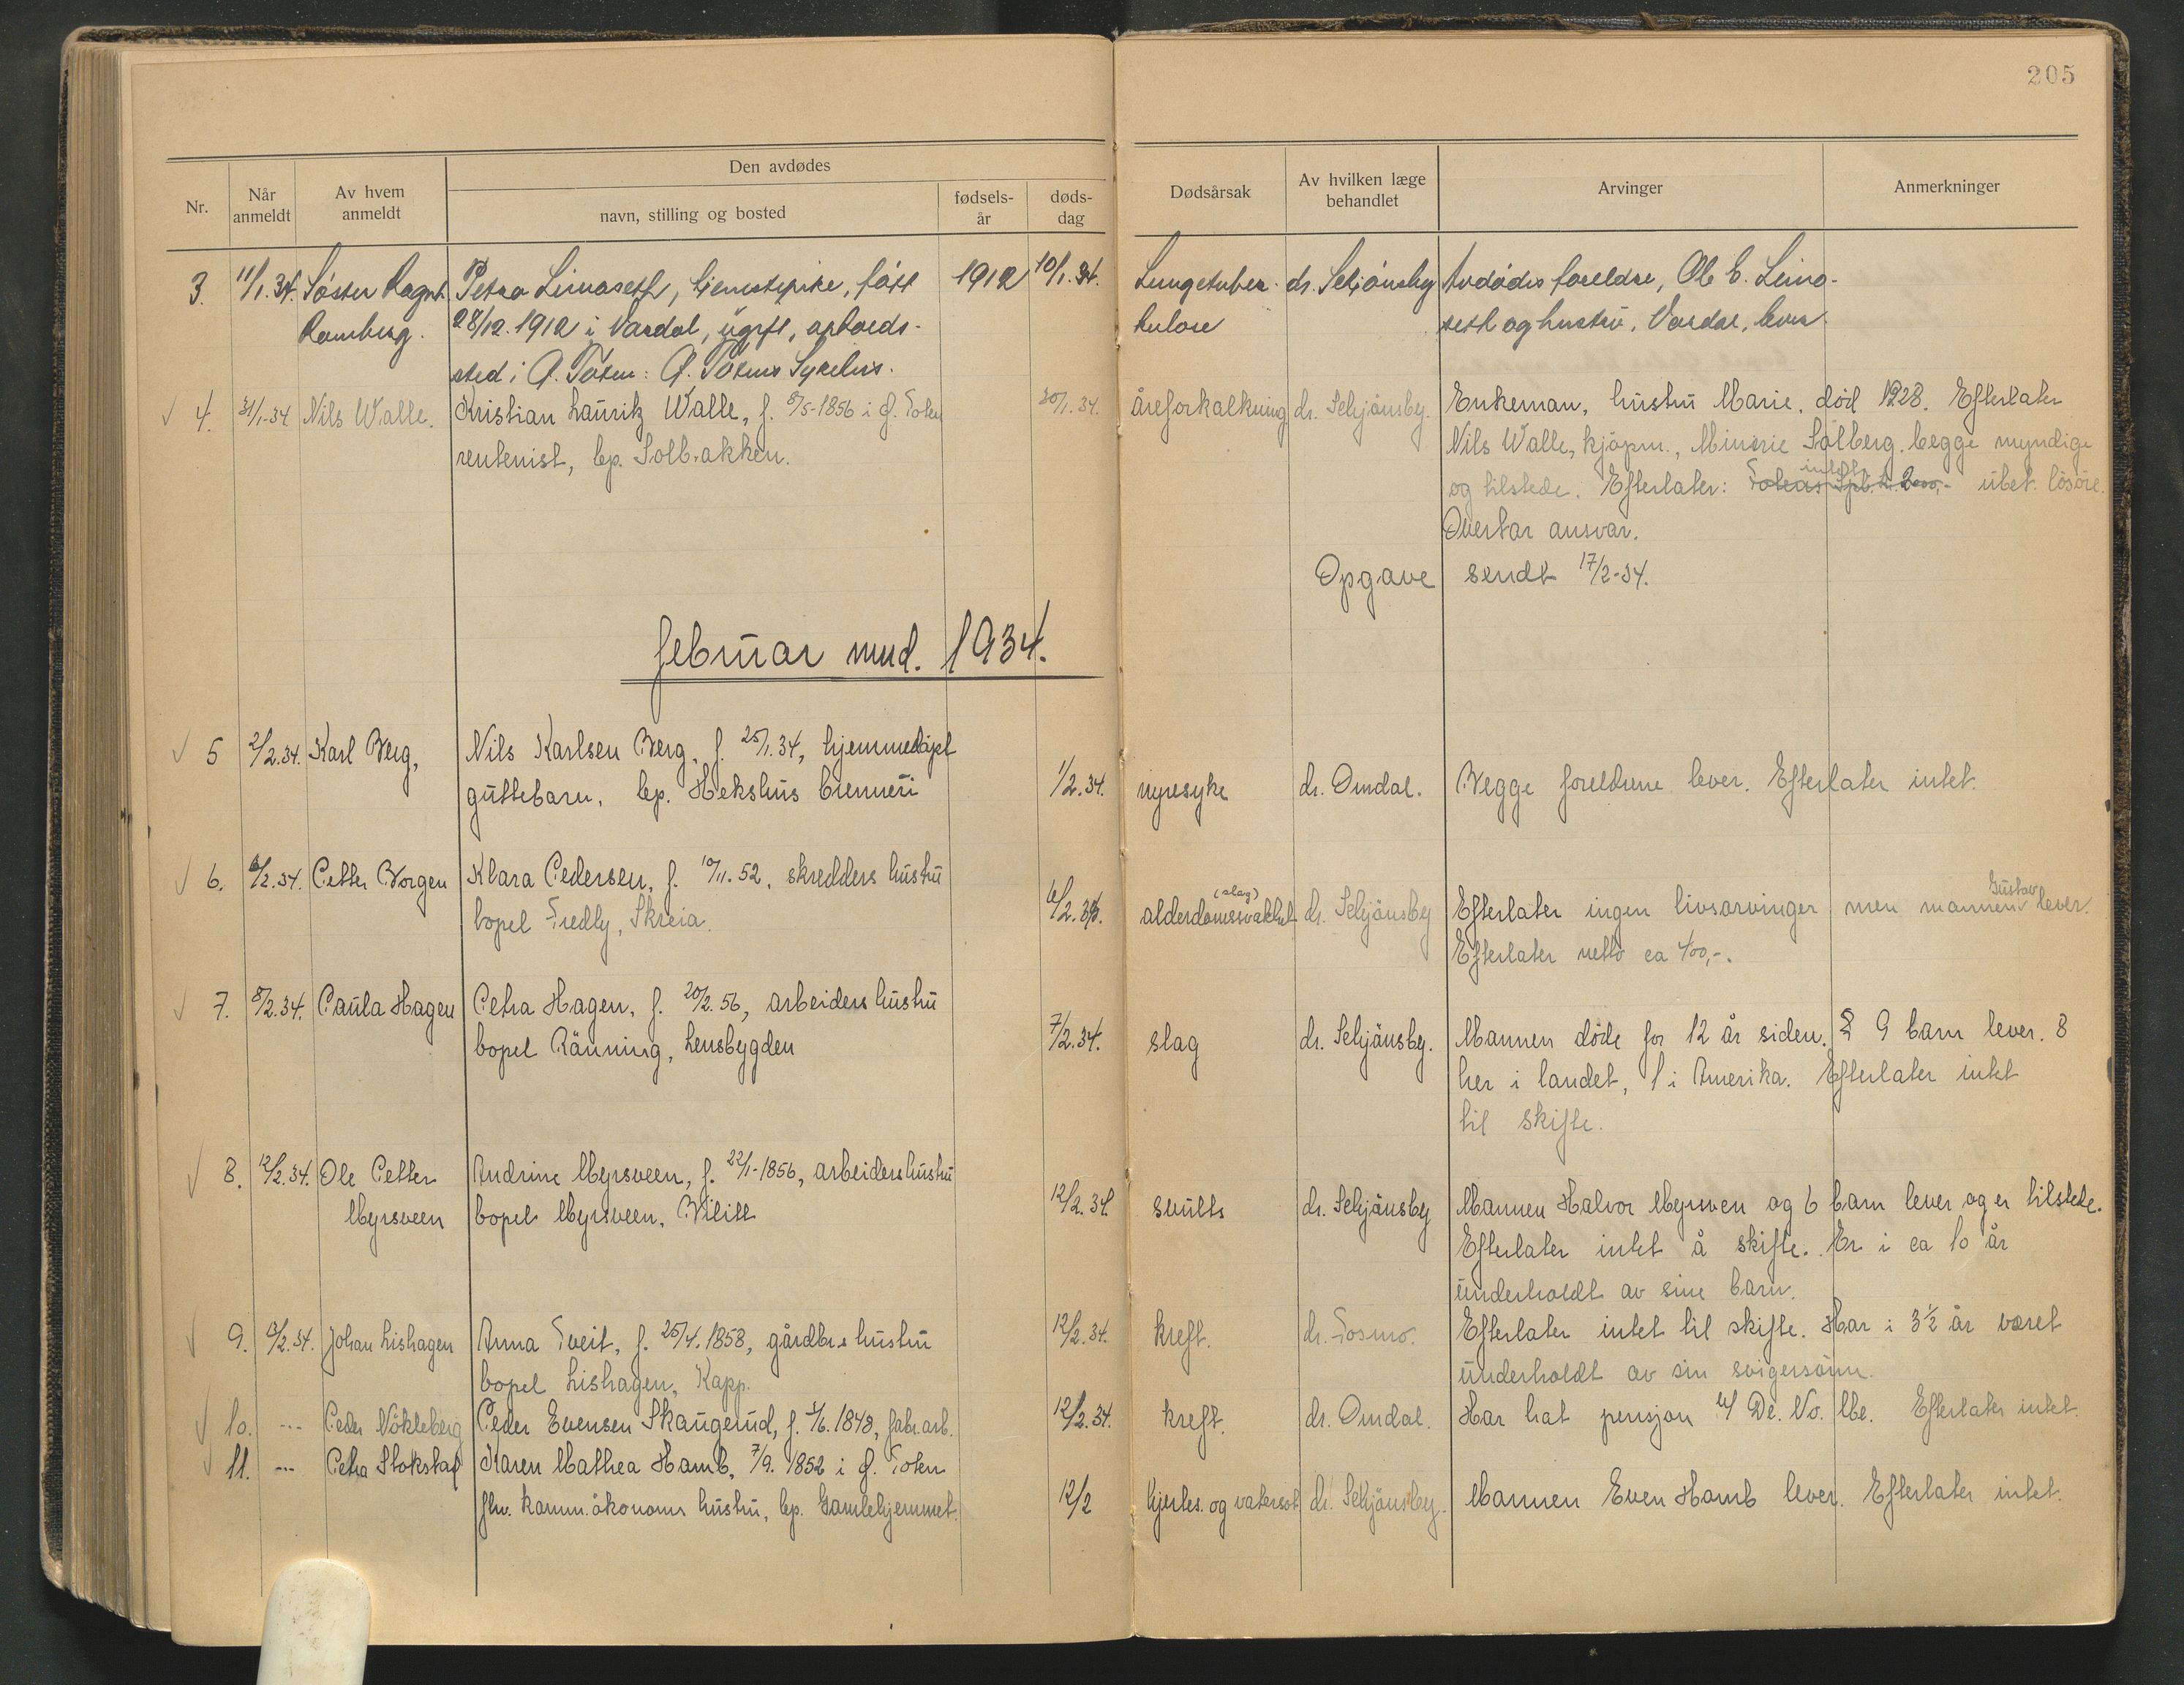 205
Den avdødes
Nr. Når anmeldt Av hvem anmeldt navn, stilling og bosted fødsels-år døds-dag Dødsårsak Av hvilken læge behandlet Arvinger Anmerkninger
3. 11/1.34. Søster Ragnh. Petra Limoseth, tjenestepike, født 1912 10/1.34. Lungetuber- dr. Schjönsby Avdødes foreldre, Ole C. Limo-
Ramberg. 28/12.1912 i Vardal, ugift, arbeids- kulose seth og hustru, Vardal, lever.
sted i Ø. Toten: Ø. Totens Sykehus.
4. 31/1-34 Nils Walle. Kristian Lauritz Walle, f. 8/5-1856 i Ø. Toten 30/1.34. åreforkalkning dr. Schjönsby. Enkeman, hustru Marie, död 1928. Efterlater
rentenist, bp. Solbakken. Nils Walle, kjöpm., Minerie Solberg, begge myndige
og tilstede. Efterlater: Totens Spb. kr. 2000,- intet ubet. lösöre.
Overtar ansvar.
Opgave sendt 17/2-34.
februar mnd. 1934.
5 2/2.34. Karl Berg, Nils Karlsen Berg, f. 25/1.34, hjemmedöpt
guttebarn, bp. Hekshus brenneri 1/2.34. nyresyke dr. Omdal. Begge foreldrene lever. Efterlater intet.
6. 6/2.34. Petter Borgen Klara Pedersen, f. 10/11.52, skredders hustru
bopel Fredly, Skreia. 6/2.34. alderdomssvakhet (slag) dr. Schjönsby Efterlater ingen livsarvinger men mannen Gustav lever.
Efterlater netto ca 400,-.
7. 8/2.34. Paula Hagen Petra Hagen, f. 20/2.56, arbeiders hustru
bopel Rånning, Lensbygden 7/2.34. slag dr. Schjönsby. Mannen döde for 12 år siden. 9 barn lever. 8
her i landet, 1 i Amerika. Efterlater intet
til skifte.
8. 12/2.34. Ole Petter Andrine Myrsveen, f. 22/1-1856, arbeiders hustru
Myrsveen bopel Myrsveen, Bilitt 12/2.34. svults dr. Schjönsby Mannen Halvor Myrsveen og 6 barn lever og er tilstede.
Efterlater intet å skifte. Er i ca 10 år
underholdt av sine barn.
9. 13/2.34. Johan Lishagen Anna Tveit, f. 25/4.1858, gårdbr.s hustru 12/2.34. kreft. dr. Fosmo. Efterlater intet til skifte. Har i 3½ år været
bopel Lishagen, Kapp. underholdt av sin svigersönn.
10. --- Peder Nökleberg Peder Evensen Skaugerud, f. 1/6.1848, fabr.arb. 12/2.34. kreft. dr. Omdal. Har hat pensjon av De. No. Me. Efterlater intet.
11. --- Petra Stokstad Karen Mathea Hamb, 7/9.1852 i Ø. Toten
fhv. komm. ökonoms hustru, bp. Gamlehjemmet. 12/2 hjertes. og vatersot dr. Schjönsby. Mannen Even Hamb lever. Efterlater intet.